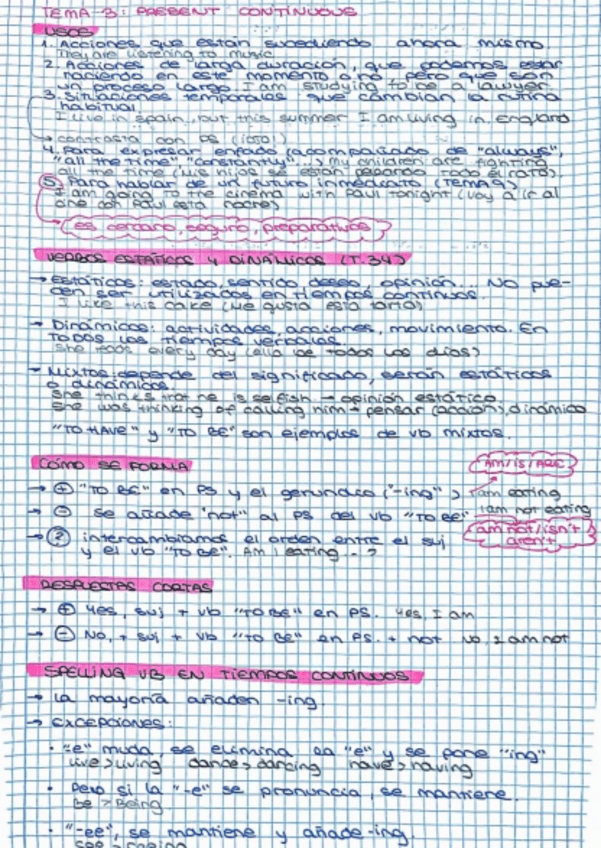 TEMA 3: PRESENT CONTINUOUS
USOS
1. Acciones que están sucediendo ahora mismo
They are listening to music.
2. Acciones de larga duración, que podemos estar
haciendo en este momento o no, pero que son
un proceso largo. I am studying to be a lawyer.
3. Situaciones temporales que cambian la rutina
habitual.
I live in Spain, but this summer I am living in England
→ contrasta con PS
4. Para expresar enfado (acompañado de "always",
"all the time", "constantly"...) my children are fighting
all the time (mis hijos se están pegando todo el rato).
⑤ Para hablar de un futuro inmediato (TEMA 9)
I am going to the cinema with Paul tonight (voy a ir al
cine con Paul esta noche)
es cercano, seguro, preparativos
VERBOS ESTÁTICOS Y DINÁMICOS (T.34)
→ Estáticos: estado, sentido, deseo, opinión... No pue-
den ser utilizados en tiempos continuos.
I like this cake (me gusta esta tarta)
→ Dinámicos: actividades, acciones, movimiento. En
TODOS los tiempos verbales.
She reads every day (ella lee todos los días)
→ Mixtos: depende del significado, serán estáticos
o dinámicos.
She thinks that he is selfish → opinión estático
She was thinking of calling him → pensar (acción), dinámico
"TO HAVE" y "TO BE" son ejemplos de vb mixtos.
CÓMO SE FORMA
AM/IS/ARE
→ ⊕ "TO BE" en PS y el gerundio ("-ing") I am eating
→ ⊖ se añade "not" al PS del vb "TO BE" I am not eating
am not/isn't
aren't
→ ② intercambiamos el orden entre el suj
y el vb "TO BE". Am I eating...?
RESPUESTAS CORTAS
→ ⊕ Yes, suj + vb "TO BE" en PS. Yes, I am
→ ⊖ No, + suj + vb "TO BE" en PS. + not No, I am not
SPELLING VB EN TIEMPOS CONTÍNUOS
→ La mayoría añaden -ing.
→ EXCEPCIONES:
· "e" muda, se elimina la "e" y se pone "ing"
live > living dance > dancing have > having
· Pero si la "-e" se pronuncia, se mantiene.
be > Being
· "-ee", se mantiene y añade -ing.
see > seeing